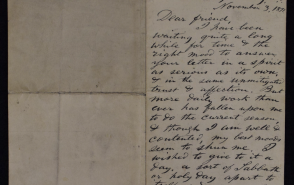 November 9, 18
Dear friend,
I have been
waiting quite a long
while for time & the
right mood to answer
your letter in a spirit
as serious as its own,
& in the same unmitigated
trust & affection. But
more daily work than
ever has fallen upon me
to do the current season,
& though I am well &
contented, my best moods
seem to shun me. I
wished to give to it a
day, a sort of Sabbath
or holy day apart to